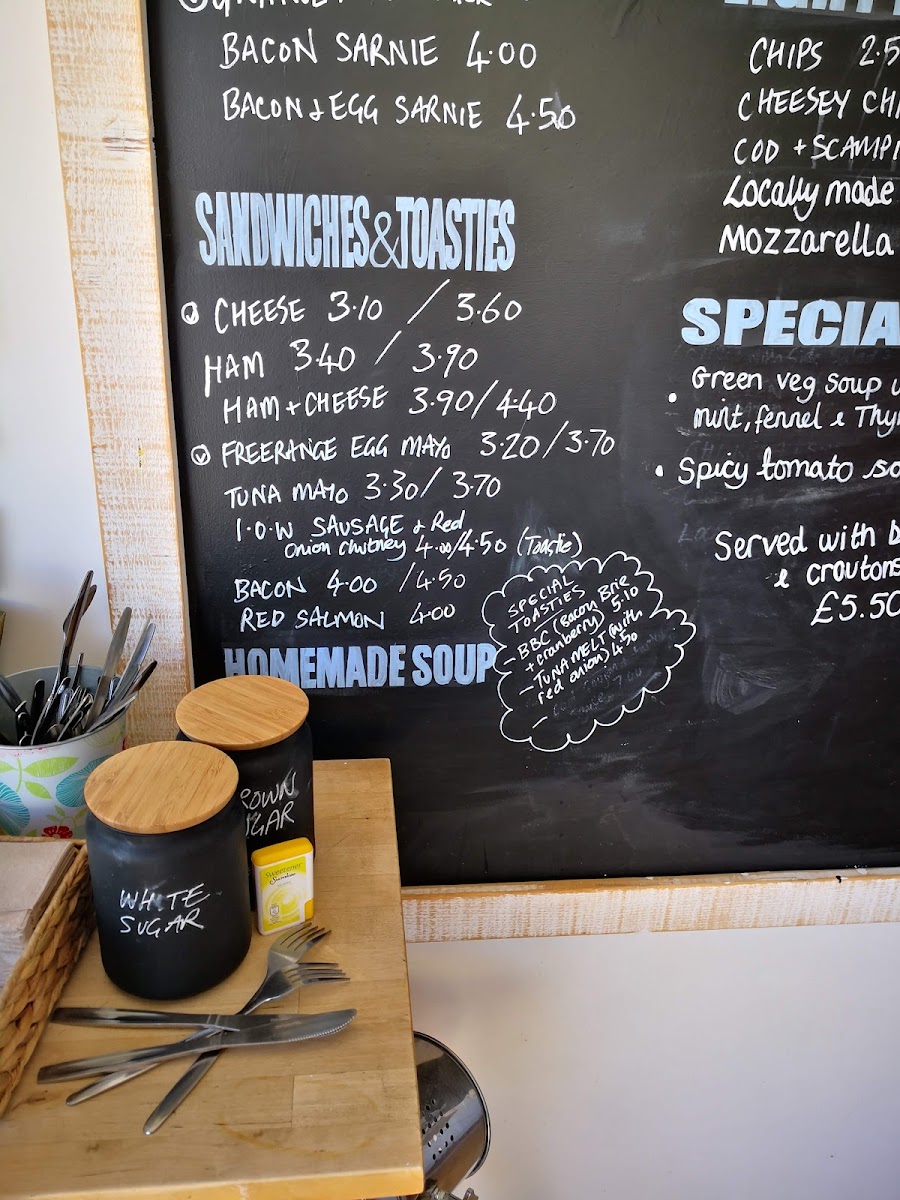 BACON SARNIE 4.00
BACON & EGG SARNIE 4.50
SANDWICHES & TOASTIES
V CHEESE 3.10 / 3.60
HAM 3.40 / 3.90
HAM + CHEESE 3.90 / 4.40
V FREERANGE EGG MAYO 3.20 / 3.70
TUNA MAYO 3.30 / 3.70
I.O.W SAUSAGE & Red
Onion Chutney 4.00/4.50 (Toastie)
BACON 4.00 / 4.50
RED SALMON 4.00
HOMEMADE SOUP
SPECIAL
TOASTIES
- BBC (Bacon Brie
+ cranberry) 5.10
- TUNA MELT (with
red onion) 4.50
CHIPS 2.5
CHEESEY CH
COD + SCAMPI
Locally made
Mozzarella
SPECIA
• Green veg soup
mint, fennel & Thy
• Spicy tomato so
Served with b
& croutons
£5.50
BROWN
SUGAR
WHITE
SUGAR
Sweetener